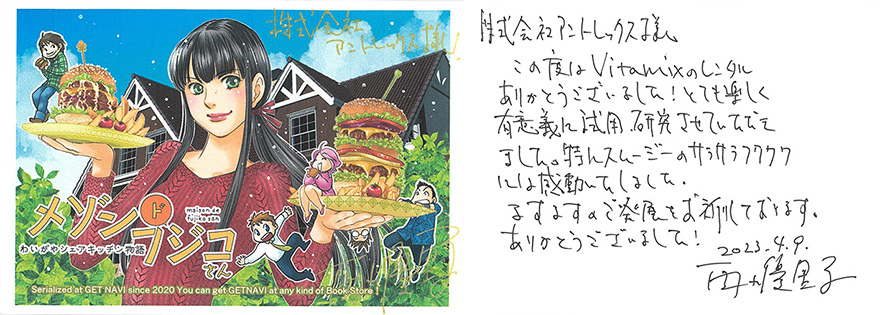 株式会社
アントレックス様!
メゾンドフジコさん
maison de
fujiko san
わいがやシェアキッチン物語
Serialized at GET NAVI since 2020 You can get GETNAVI at any kind of Book Store !
株式会社アントレックス様、
この度はVitamixのレンタル
ありがとうございました!とても楽しく
有意義に試用、研究させていただき
ました。特にスムージーのサラサラフワフワ
には感動いたしました。
ますますのご発展をお祈りしております。
ありがとうございました!
2023.4.9.